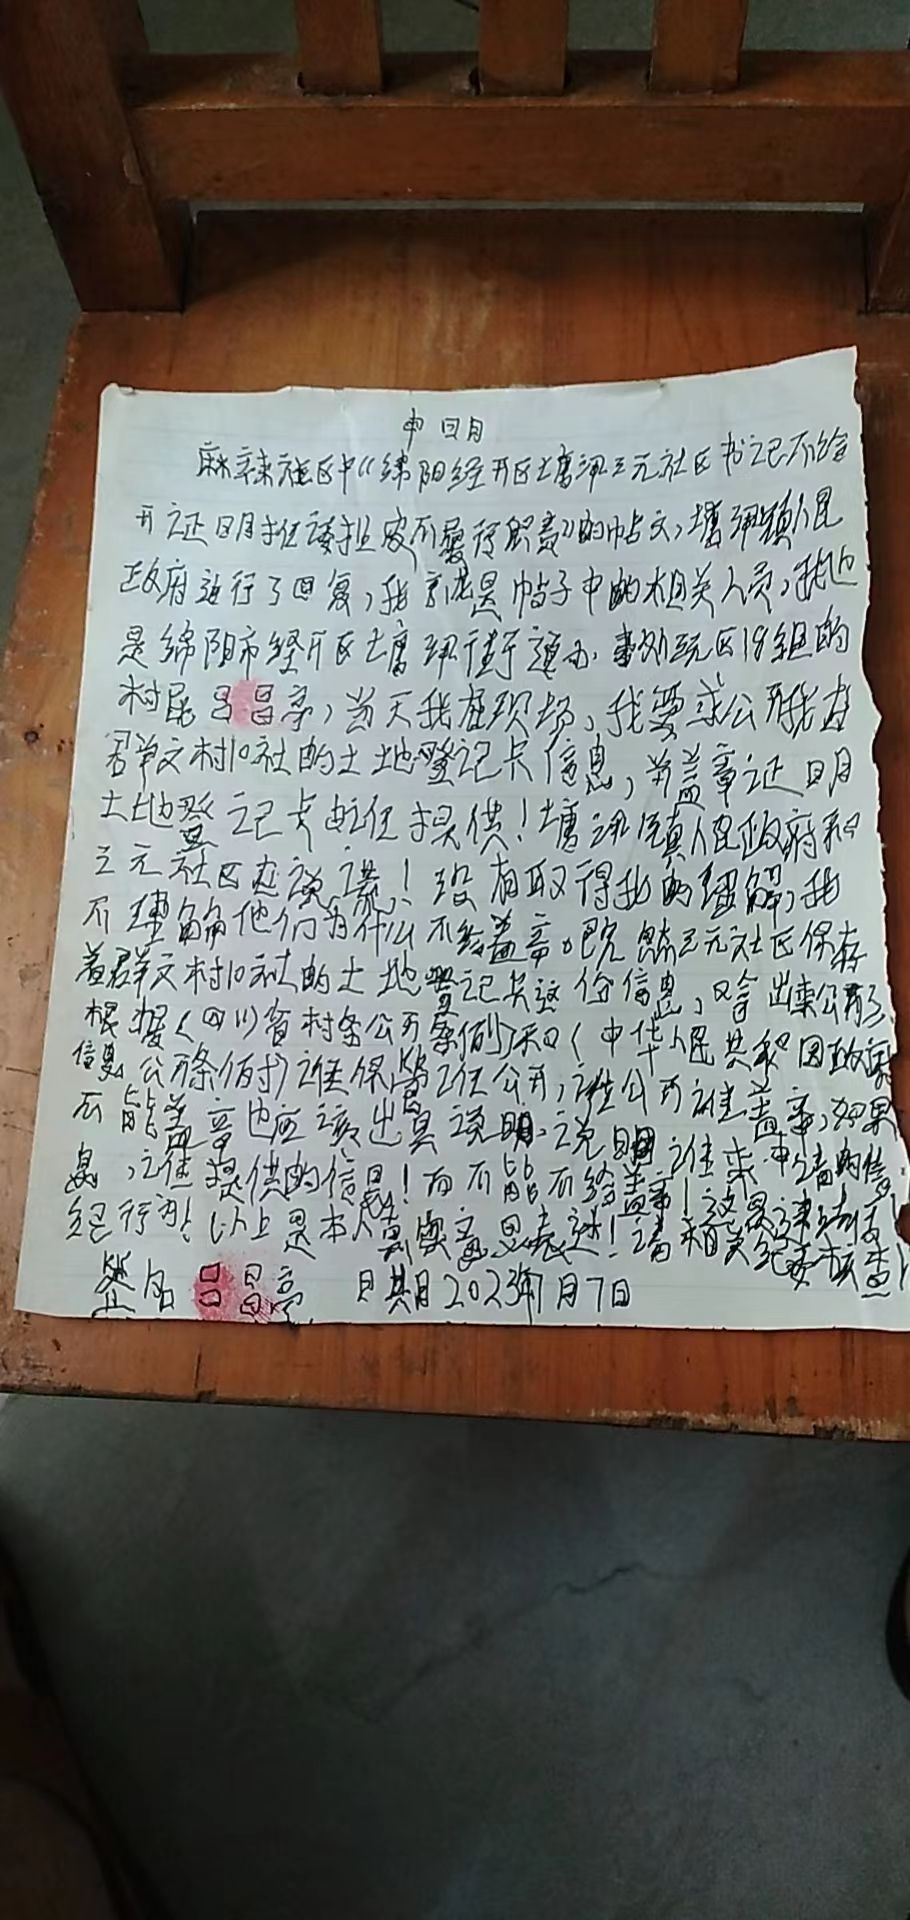 申 明
麻辣社区中《绵阳经开区塘汛三元社区书记不给
开证明推诿扯皮不履行职责》的帖文，塘汛镇人民
政府进行了回复，我就是帖子中的相关人员，我也
是绵阳市经开区塘汛街道办 社区18组的
村民吕昌 ，当天我在现场，我要求公开我在
群文村10社的土地登记卡信息，并盖章证明
土地登记卡 提供！塘汛镇人民政府和
三元社区 说谎！没有取得我的 解，我
不理解他们为什么不给盖章。既然三元社区保存
着群文村10社的土地登记卡这份信息， 出来公开了，
根据《四川省村务公开条例》和《中华人民共和国政府
信息公开条例》谁保管谁公开，谁公开谁盖章，如果
不能盖章也应该出具说明，说明谁 申请的信
息，谁提供的信息！而不能不给盖章！这是
纪行为！以上是本人真实意思表述！请相关纪委核查！
签名 吕昌 日期2023年7月7日